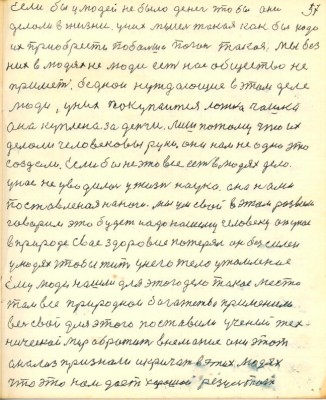 37
Если бы у людей не было денег что бы они
делали в жизни. у них мысль такая как бы надо
их приобрести побольше такая, мы без
них в людях не люди есть нас общество не
примет. бедной нуждающие в этом деле
люди, у них покупается ложка чашка
она куплена за деньги. лиш потому что их
делали человеков руки. они нам не одно это
создали. Если бы не это все есть в людях дело.
у нас не у жизни наука. она нами
поставленая на ноги. мы ум свой в этом
говорим это будет надо нашему человеку. он у нас
в природе свае здоровие потерял он бессилен
у людях чтобы жить у него тело утомление
Ему люди нашли для этого дело такое место
там все природной богатство применили
весь свой для этого поставили ученый тех-
нической мир обратить внимание они этот
анализ признали и кричат в этих людях
что это нам дает хороший результат